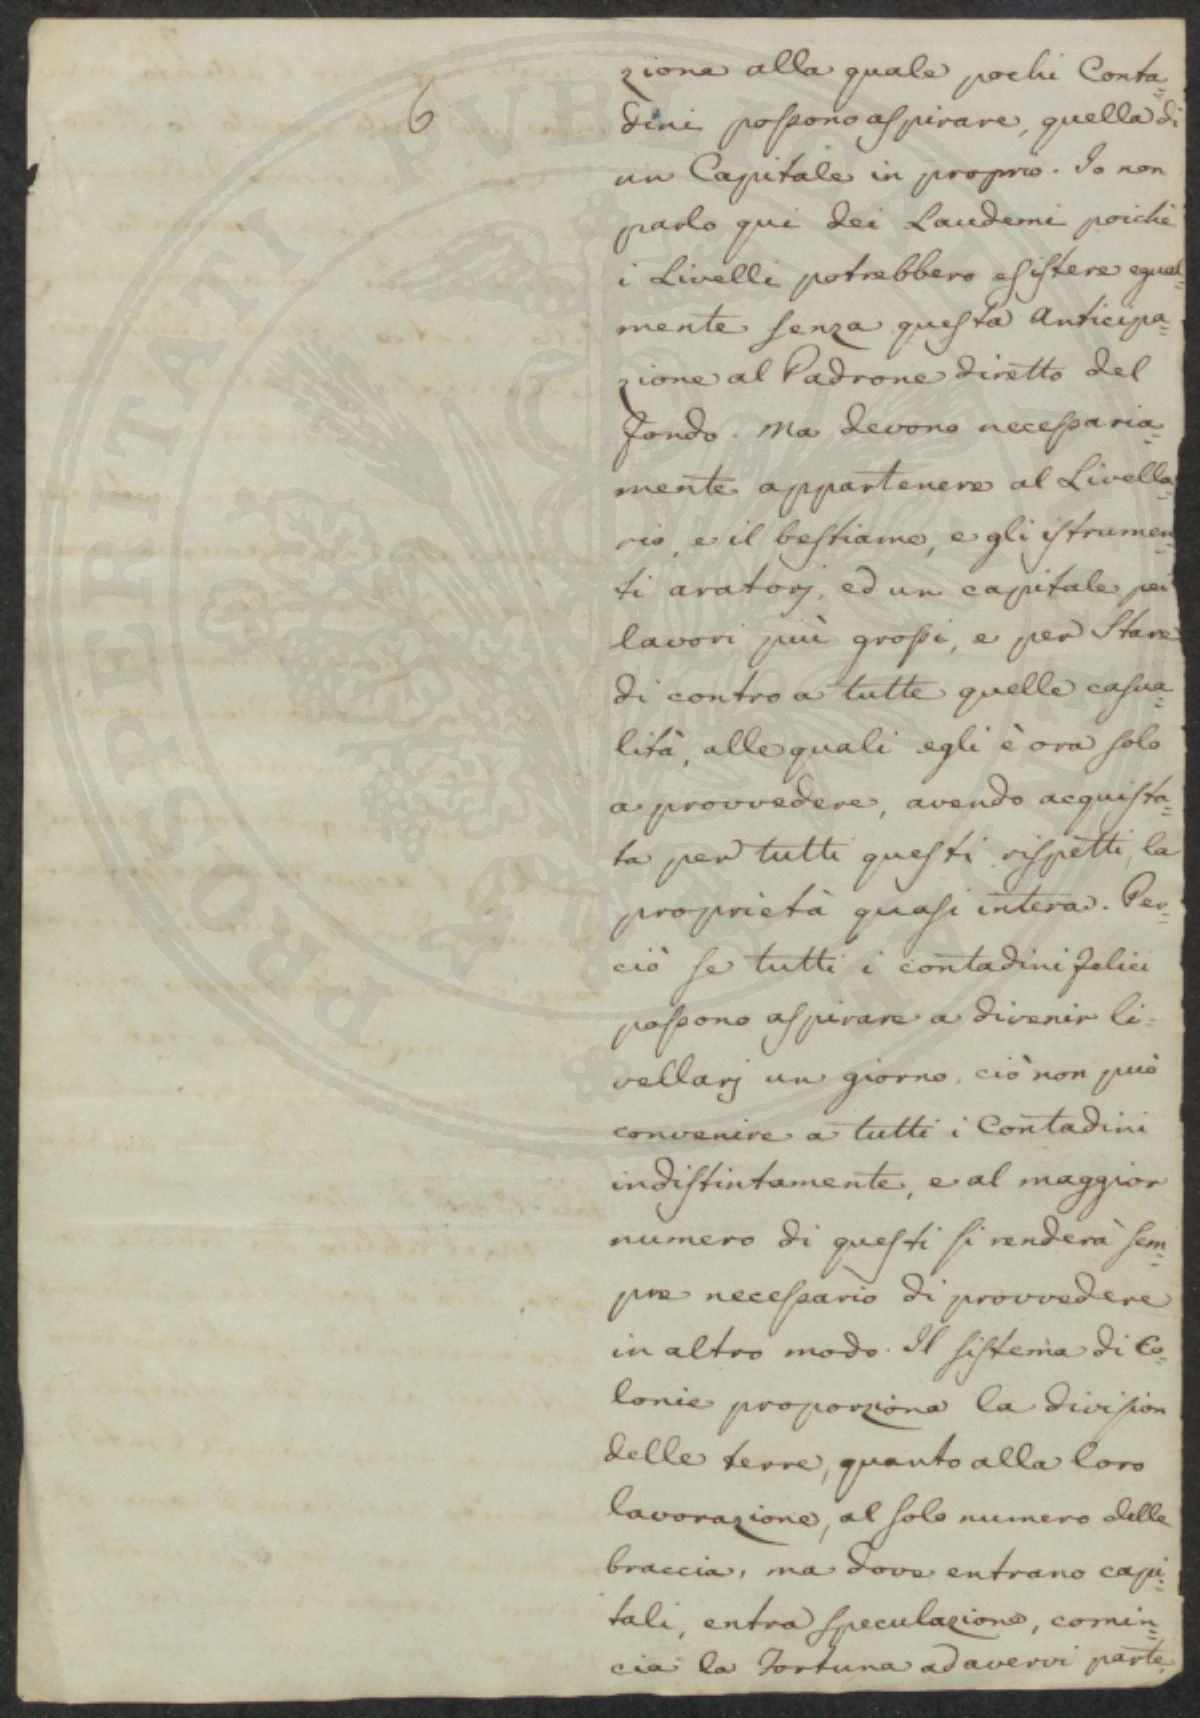 6
zione alla quale pochi Conta=
dini possono aspirare, quella di
un Capitale in proprio. Io non
parlo qui dei Laudemi poichè
i Livelli potrebbero esistere egual=
mente senza questa Anticipa=
zione al Padrone diretto del
fondo. Ma devono necessaria=
mente appartenere al Livella=
rio, e il bestiame, e gli istrumen=
ti aratorj, ed un capitale pei
lavori più grossi, e per stare
di contro a tutte quelle casua=
lità, alle quali egli è ora solo
a provvedere, avendo acquista=
ta per tutti questi rispetti, la
proprietà quasi intera. Per=
ciò se tutti i contadini felici
possono aspirare a divenir li=
vellarj un giorno, ciò non può
convenire a tutti i Contadini
indistintamente, e al maggior
numero di questi si renderà sem=
pre necessario di provvedere
in altro modo. Il sistema di Co=
lonie proporziona la division
delle terre, quanto alla loro
lavorazione, al solo numero delle
braccia, ma dove entrano capi=
tali, entra speculazione, comin=
cia la Fortuna ad avervi parte,
PROSPERITATI PVBLICAE